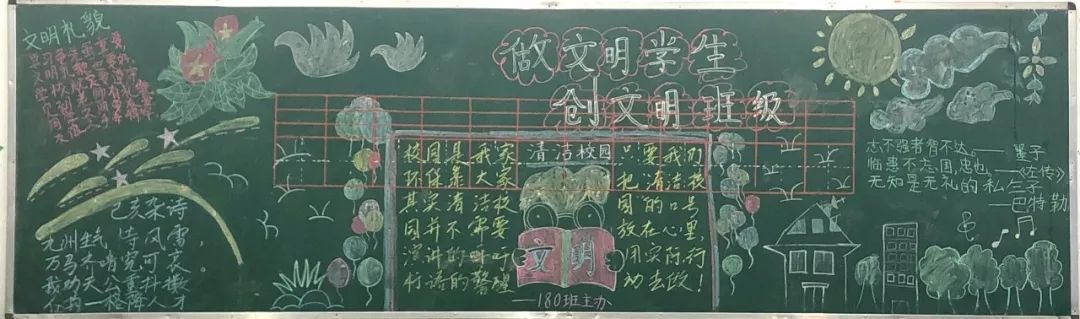 做文明学生
创文明班级
文明礼貌
清洁校园
校园是我家
环保靠大家
其实清洁校
园并不需要
演讲的叫
标语的警醒
只要我们
把清洁校
园的口号
放在心里,
用实际行
动去做!
文明
——180班主办
己亥杂诗
九州生气恃风雷,
万马齐喑究可哀
我劝天公重抖擞
不拘一格降人才
志不强者智不达。——墨子
临患不忘国,忠也。——《左传》
无知是无礼的私生子
——巴特勒